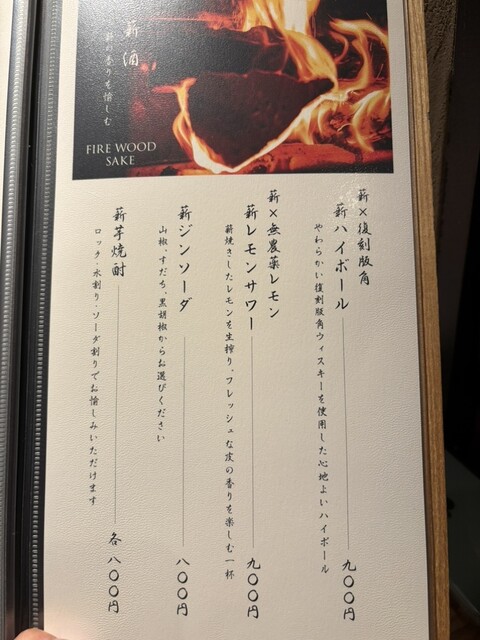 薪酒
薪の香りを愉しむ
FIRE WOOD
SAKE
薪×復刻版角
薪ハイボール 九〇〇円
やわらかい復刻版角ウィスキーを使用した心地よいハイボール
薪×無農薬レモン
薪レモンサワー 九〇〇円
薪焼きしたレモンを生搾り、フレッシュな皮の香りを楽しむ一杯
薪ジンソーダ 八〇〇円
山椒、すだち、黒胡椒からお選びください
薪芋焼酎 各八〇〇円
ロック・水割り・ソーダ割りでお愉しみいただけます